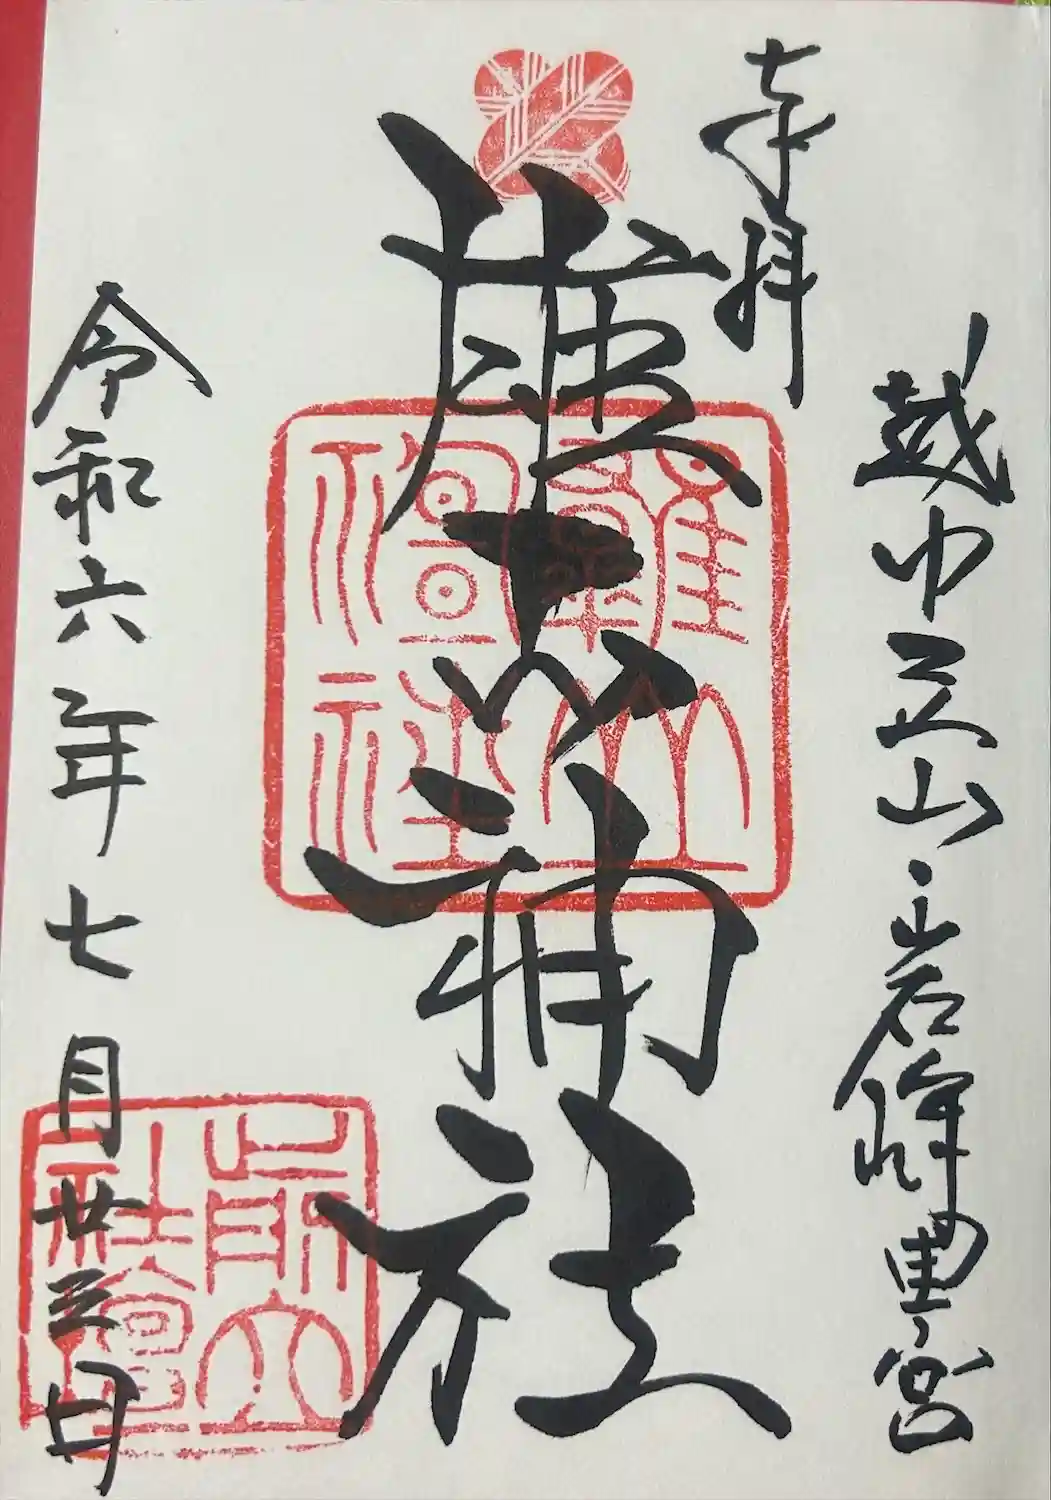 奉拝
越中立山・岩峅里宮
雄山神社
令和六年七月廿三日
前立社壇